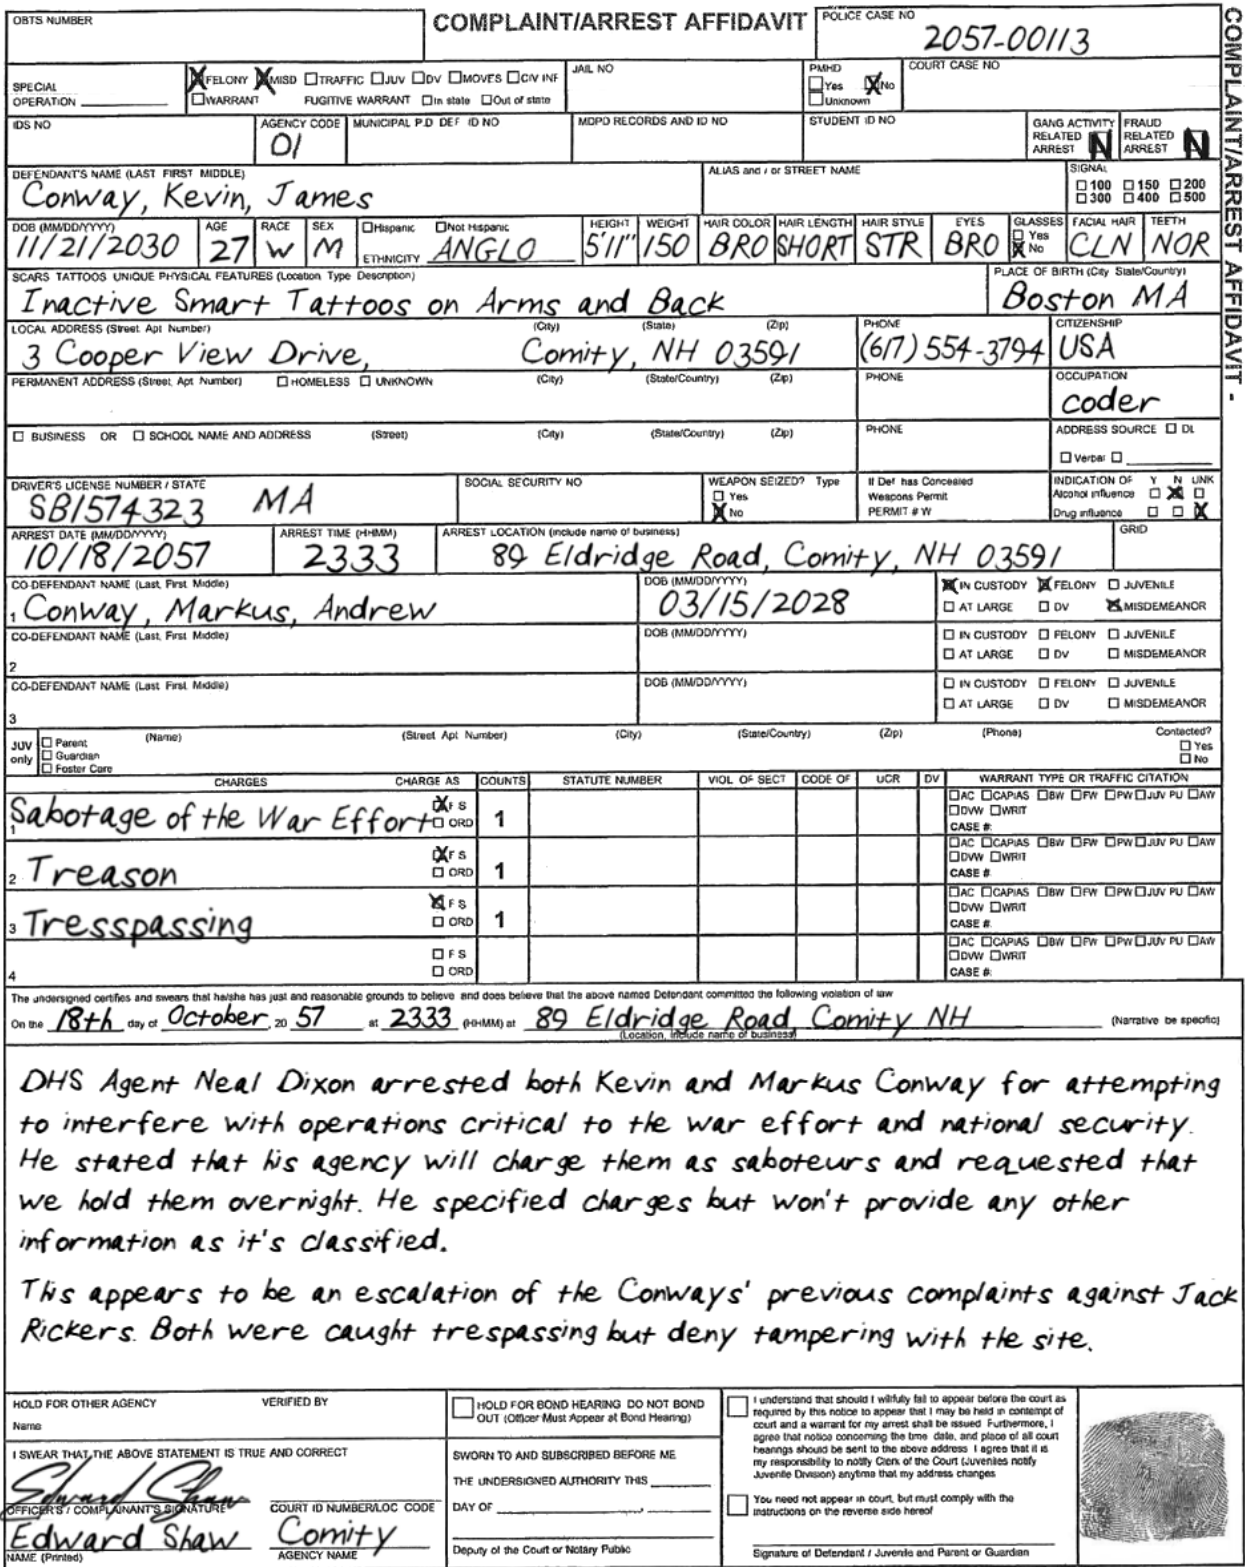 OBTS NUMBER
COMPLAINT/ARREST AFFIDAVIT
POLICE CASE NO
2057-00113
COMPLAINT/ARREST AFFIDAVIT -
SPECIAL
OPERATION
FELONY MISD TRAFFIC JUV DV MOVES CIV INF
WARRANT FUGITIVE WARRANT In state Out of state
JAIL NO
PMHD
Yes No
Unknown
COURT CASE NO
IDS NO
AGENCY CODE
01
MUNICIPAL P.D DEF ID NO
MDPD RECORDS AND ID NO
STUDENT ID NO
GANG ACTIVITY
RELATED
ARREST N
FRAUD
RELATED
ARREST N
DEFENDANT'S NAME (LAST FIRST MIDDLE)
Conway, Kevin, James
ALIAS and / or STREET NAME
SIGNAL
100 150 200
300 400 500
DOB (MM/DD/YYYY)
11/21/2030
AGE
27
RACE
W
SEX
M
Hispanic Not Hispanic
ETHNICITY ANGLO
HEIGHT
5'11"
WEIGHT
150
HAIR COLOR
BRO
HAIR LENGTH
SHORT
HAIR STYLE
STR
EYES
BRO
GLASSES
Yes
No
FACIAL HAIR
CLN
TEETH
NOR
SCARS TATTOOS UNIQUE PHYSICAL FEATURES (Location Type Description)
Inactive Smart Tattoos on Arms and Back
PLACE OF BIRTH (City State/Country)
Boston MA
LOCAL ADDRESS (Street Apt Number) (City) (State) (Zip)
3 Cooper View Drive, Comity, NH 03591
PHONE
(617) 554-3794
CITIZENSHIP
USA
PERMANENT ADDRESS (Street, Apt Number) HOMELESS UNKNOWN (City) (State/Country) (Zip)
PHONE
OCCUPATION
coder
BUSINESS OR SCHOOL NAME AND ADDRESS (Street) (City) (State/Country) (Zip)
PHONE
ADDRESS SOURCE DL
Verbal
DRIVER'S LICENSE NUMBER / STATE
SB1574323 MA
SOCIAL SECURITY NO
WEAPON SEIZED? Type
Yes
No
If Def has Concealed
Weapons Permit
PERMIT # W
INDICATION OF Y N UNK
Alcohol influence
Drug influence
ARREST DATE (MM/DD/YYYY)
10/18/2057
ARREST TIME (HHMM)
2333
ARREST LOCATION (include name of business)
89 Eldridge Road, Comity, NH 03591
GRID
CO-DEFENDANT NAME (Last, First Middle)
1 Conway, Markus, Andrew
DOB (MM/DD/YYYY)
03/15/2028
IN CUSTODY FELONY JUVENILE
AT LARGE DV MISDEMEANOR
CO-DEFENDANT NAME (Last, First Middle)
2
DOB (MM/DD/YYYY)
IN CUSTODY FELONY JUVENILE
AT LARGE DV MISDEMEANOR
CO-DEFENDANT NAME (Last First Middle)
3
DOB (MM/DD/YYYY)
IN CUSTODY FELONY JUVENILE
AT LARGE DV MISDEMEANOR
JUV
only
Parent
Guardian
Foster Care
(Name) (Street Apt Number) (City) (State/Country) (Zip) (Phone) Contacted?
Yes
No
CHARGES CHARGE AS COUNTS STATUTE NUMBER VIOL OF SECT CODE OF UCR DV WARRANT TYPE OR TRAFFIC CITATION
1 Sabotage of the War Effort F S ORD 1
AC CAPIAS BW FW PW JUV PU AW
DVW WRIT
CASE #:
2 Treason F S ORD 1
AC CAPIAS BW FW PW JUV PU AW
DVW WRIT
CASE #
3 Tresspassing F S ORD 1
AC CAPIAS BW FW PW JUV PU AW
DVW WRIT
CASE #
4 F S ORD
AC CAPIAS BW FW PW JUV PU AW
DVW WRIT
CASE #:
The undersigned certifies and swears that he/she has just and reasonable grounds to believe and does believe that the above named Defendant committed the following violation of law
On the 18th day of October, 20 57 at 2333 (HHMM) at 89 Eldridge Road, Comity NH (Narrative be specific)
(Location, include name of business)
DHS Agent Neal Dixon arrested both Kevin and Markus Conway for attempting
to interfere with operations critical to the war effort and national security.
He stated that his agency will charge them as saboteurs and requested that
we hold them overnight. He specified charges but won't provide any other
information as it's classified.
This appears to be an escalation of the Conways' previous complaints against Jack
Rickers. Both were caught trespassing but deny tampering with the site.
HOLD FOR OTHER AGENCY VERIFIED BY
Name
I SWEAR THAT THE ABOVE STATEMENT IS TRUE AND CORRECT
Edward Shaw
OFFICER'S / COMPLAINANT'S SIGNATURE COURT ID NUMBER/LOC CODE
Edward Shaw Comity
NAME (Printed) AGENCY NAME
HOLD FOR BOND HEARING DO NOT BOND
OUT (Officer Must Appear at Bond Hearing)
SWORN TO AND SUBSCRIBED BEFORE ME
THE UNDERSIGNED AUTHORITY THIS
DAY OF
Deputy of the Court or Notary Public
I understand that should I willfully fail to appear before the court as
required by this notice to appear that I may be held in contempt of
court and a warrant for my arrest shall be issued Furthermore, I
agree that notice concerning the time date, and place of all court
hearings should be sent to the above address I agree that it is
my responsibility to notify Clerk of the Court (Juveniles notify
Juvenile Division) anytime that my address changes
You need not appear in court, but must comply with the
instructions on the reverse side hereof
Signature of Defendant / Juvenile and Parent or Guardian